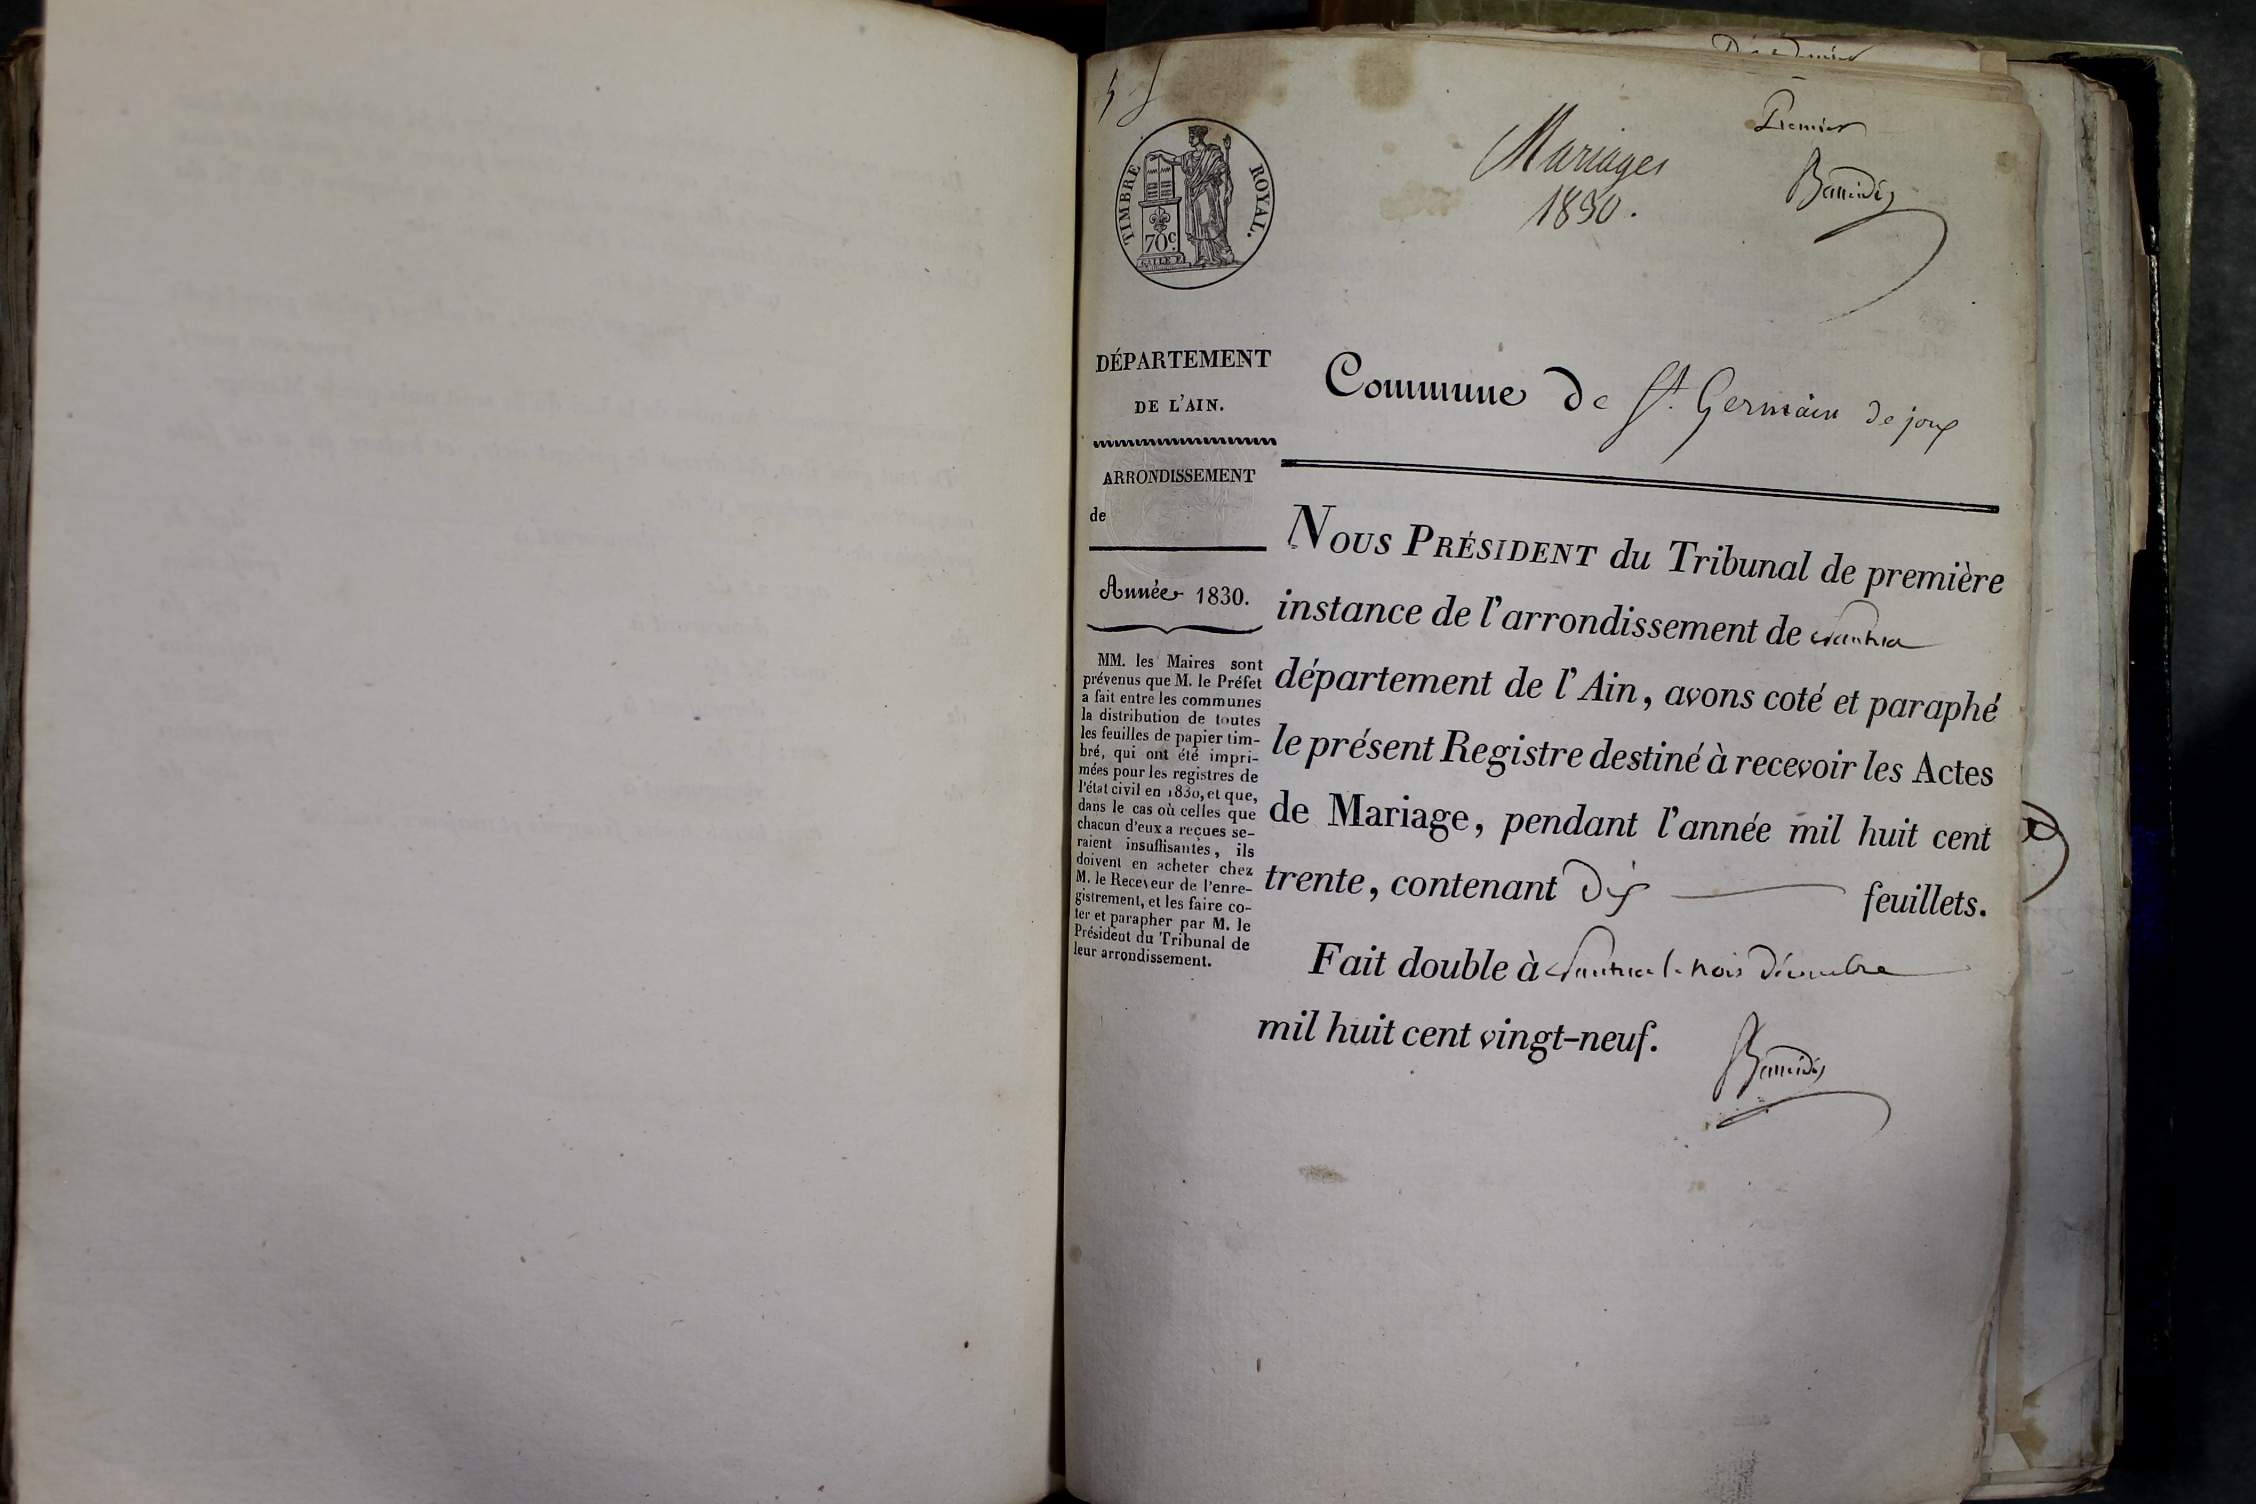 Premier
Mariages
1830.
TIMBRE ROYAL.
70c.
GALLE F.
DÉPARTEMENT
DE L'AIN.
ARRONDISSEMENT
de
Année 1830.
MM. les Maires sont
prévenus que M. le Préfet
a fait entre les communes
la distribution de toutes
les feuilles de papier tim-
bré, qui ont été impri-
mées pour les registres de
l'état civil en 1830, et que,
dans le cas où celles que
chacun d'eux a reçues se-
raient insuffisantes, ils
doivent en acheter chez
M. le Receveur de l'enre-
gistrement, et les faire co-
ter et parapher par M. le
Président du Tribunal de
leur arrondissement.
Commune de St. Germain de joux
NOUS PRÉSIDENT du Tribunal de première
instance de l'arrondissement de Nantua
département de l'Ain, avons coté et paraphé
le présent Registre destiné à recevoir les Actes
de Mariage, pendant l'année mil huit cent
trente, contenant dix feuillets.
Fait double à Nantua le trois décembre
mil huit cent vingt-neuf.